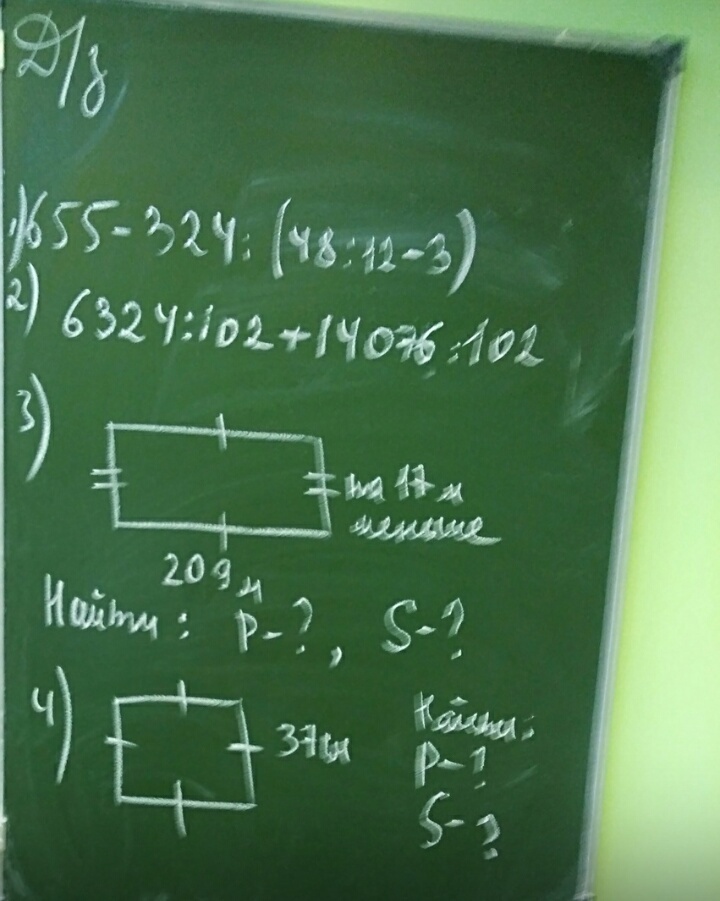 Д/з
1) 655-324:(48:12-3)
2) 6324:102+14076:102
3)
на 17 м
меньше
209 м
Найти: P-?, S-?
4)
37см
Найти:
P-?
S-?